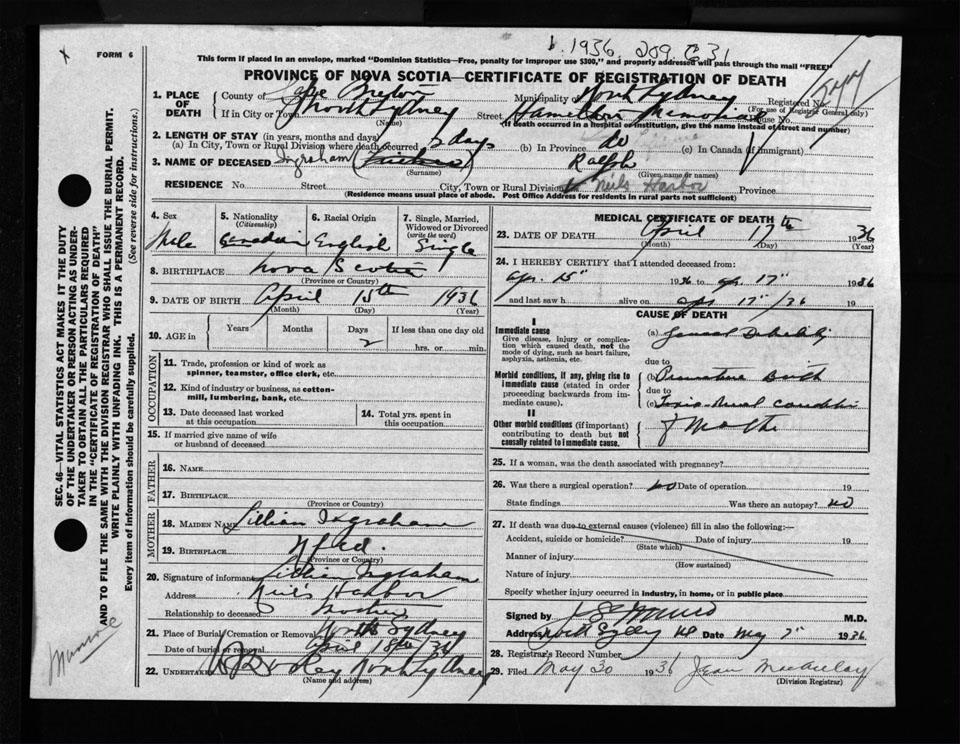 X FORM 6
1936 209 31
This form if placed in an envelope, marked "Dominion Statistics—Free, penalty for improper use $300," and properly addressed will pass through the mail "FREE"
PROVINCE OF NOVA SCOTIA—CERTIFICATE OF REGISTRATION OF DEATH
1. PLACE OF DEATH
County of Cape Breton Municipality of North Sydney Registered No.
(For use of Registrar General only)
If in City or Town North Sydney Street Hamilton Memorial House No.
(Name) (If death occurred in a hospital or institution, give the name instead of street and number)
2. LENGTH OF STAY (in years, months and days)
(a) In City, Town or Rural Division where death occurred 2 days (b) In Province do (c) In Canada (if immigrant)
3. NAME OF DECEASED Ingraham Ralph
(Surname) (Given name or names)
RESIDENCE No. Street City, Town or Rural Division Neils Harbor Province
(Residence means usual place of abode. Post Office Address for residents in rural parts not sufficient)
4. Sex
Male
5. Nationality
(Citizenship)
Canadian
6. Racial Origin
English
7. Single, Married, Widowed or Divorced
(write the word)
Single
8. BIRTHPLACE Nova Scotia
(Province or Country)
9. DATE OF BIRTH April 15th 1936
(Month) (Day) (Year)
10. AGE in
Years Months Days If less than one day old
2 hrs. or min.
OCCUPATION
11. Trade, profession or kind of work as spinner, teamster, office clerk, etc.
12. Kind of industry or business, as cotton-mill, lumbering, bank, etc.
13. Date deceased last worked at this occupation
14. Total yrs. spent in this occupation
15. If married give name of wife or husband of deceased
FATHER
16. NAME
17. BIRTHPLACE
(Province or Country)
MOTHER
18. MAIDEN NAME Lillian Ingraham
19. BIRTHPLACE Nfld.
(Province or Country)
20. Signature of informant Lillian Ingraham
Address Neil's Harbor
Relationship to deceased Mother
21. Place of Burial, Cremation or Removal North Sydney
Date of burial or removal April 18th 36
22. UNDERTAKER North Sydney
(Name and address)
MEDICAL CERTIFICATE OF DEATH
23. DATE OF DEATH April 17th 1936
(Month) (Day) (Year)
24. I HEREBY CERTIFY that I attended deceased from:
Apr. 15" 1936 to Apr. 17" 1936
and last saw h alive on Apr 17"/36 19
CAUSE OF DEATH
I
Immediate cause
Give disease, injury or complication which caused death, not the mode of dying, such as heart failure, asphyxia, asthenia, etc.
(a) General Debility
due to
Morbid conditions, if any, giving rise to immediate cause (stated in order proceeding backwards from immediate cause).
(b) Premature Birth
due to
(c) Toxic-Renal condition
of Mother
II
Other morbid conditions (if important) contributing to death but not causally related to immediate cause.
25. If a woman, was the death associated with pregnancy?
26. Was there a surgical operation? No Date of operation 19
State findings Was there an autopsy? No
27. If death was due to external causes (violence) fill in also the following:—
Accident, suicide or homicide? Date of injury 19
(State which)
Manner of injury
(How sustained)
Nature of injury
Specify whether injury occurred in industry, in home, or in public place
Signed by M.D.
Address North Sydney NS Date May 7" 1936
28. Registrar's Record Number
29. Filed May 30 1936 Jean
(Division Registrar)
SEC. 46—VITAL STATISTICS ACT MAKES IT THE DUTY
OF THE UNDERTAKER OR PERSON ACTING AS UNDERTAKER TO OBTAIN ALL THE PARTICULARS REQUIRED
IN THE "CERTIFICATE OF REGISTRATION OF DEATH"
AND TO FILE THE SAME WITH THE DIVISION REGISTRAR WHO SHALL ISSUE THE BURIAL PERMIT.
WRITE PLAINLY WITH UNFADING INK. THIS IS A PERMANENT RECORD.
Every item of information should be carefully supplied. (See reverse side for instructions.)